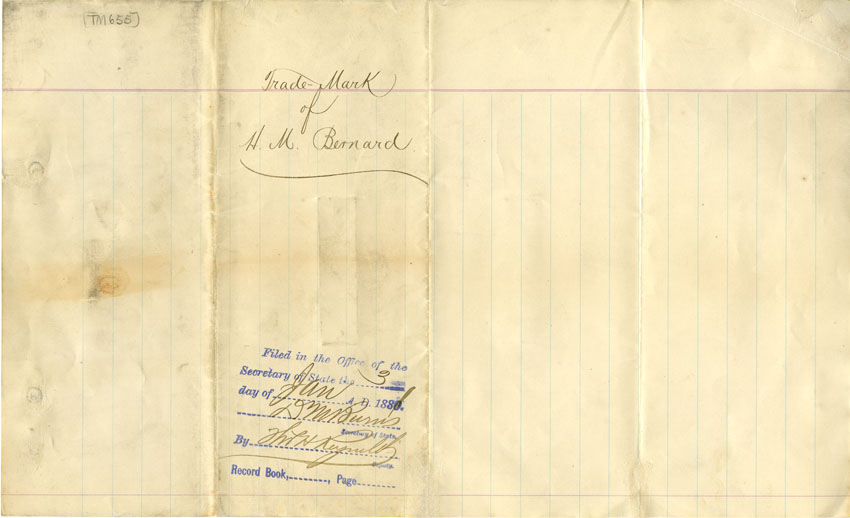 [TM655]
Trade-Mark
of
H. M. Bernard
Filed in the Office of the
Secretary of State the 3
day of Jan A.D. 188
D M Burns
Secretary of State.
By Thos H Reynolds
Deputy.
Record Book, , Page